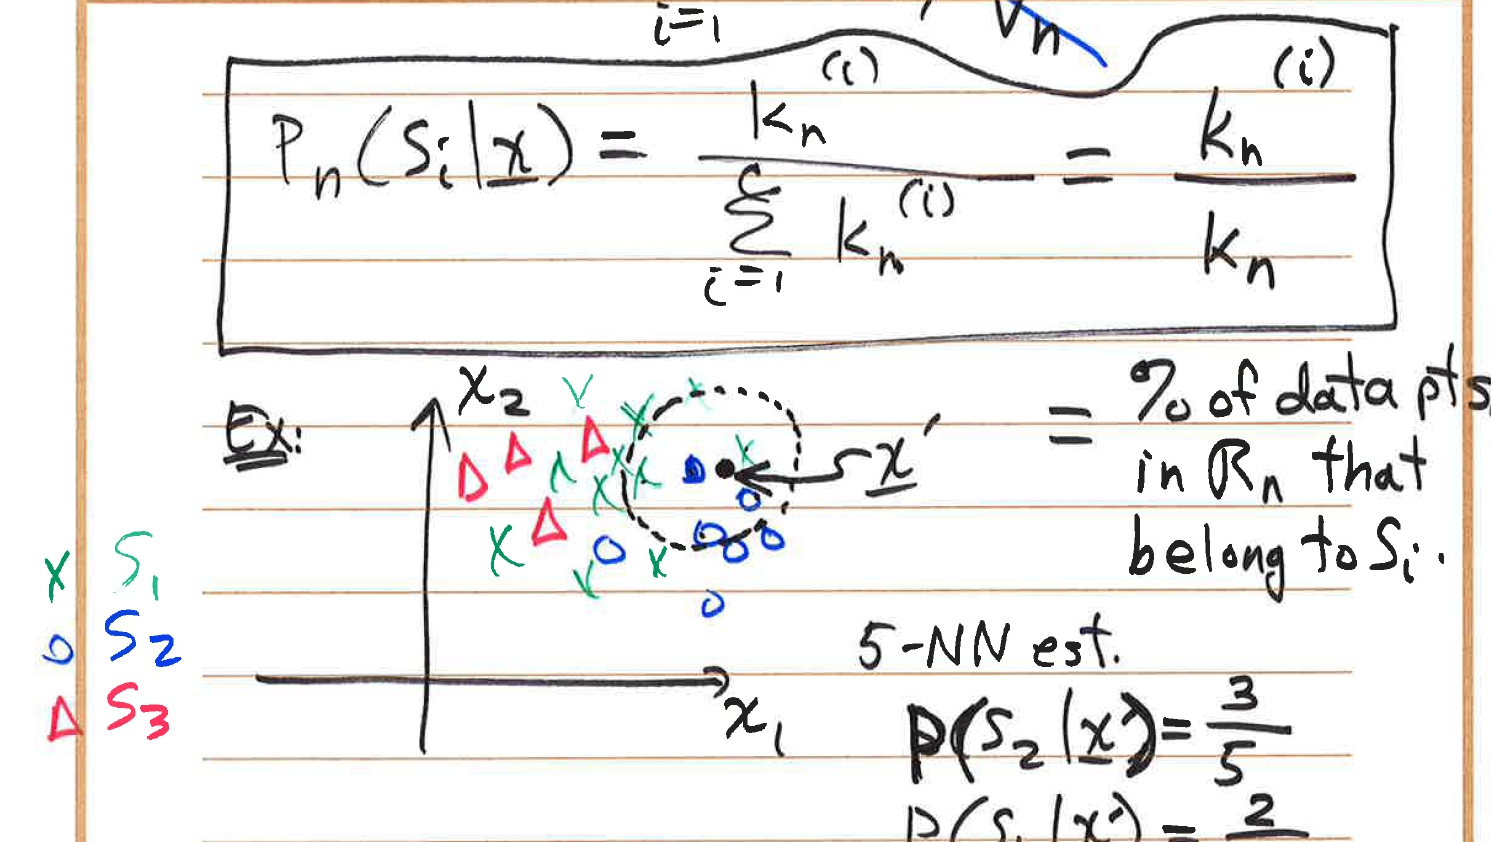 i=1 Vn
Pn(Si|x) = kn(i) / Σ(i=1 to c) kn(i) = kn(i) / kn
Ex: x2 x' = % of data pts
in Rn that
belong to Si.
x S1
o S2
Δ S3
x1
5-NN est.
P(S2|x') = 3/5
P(S1|x') = 2